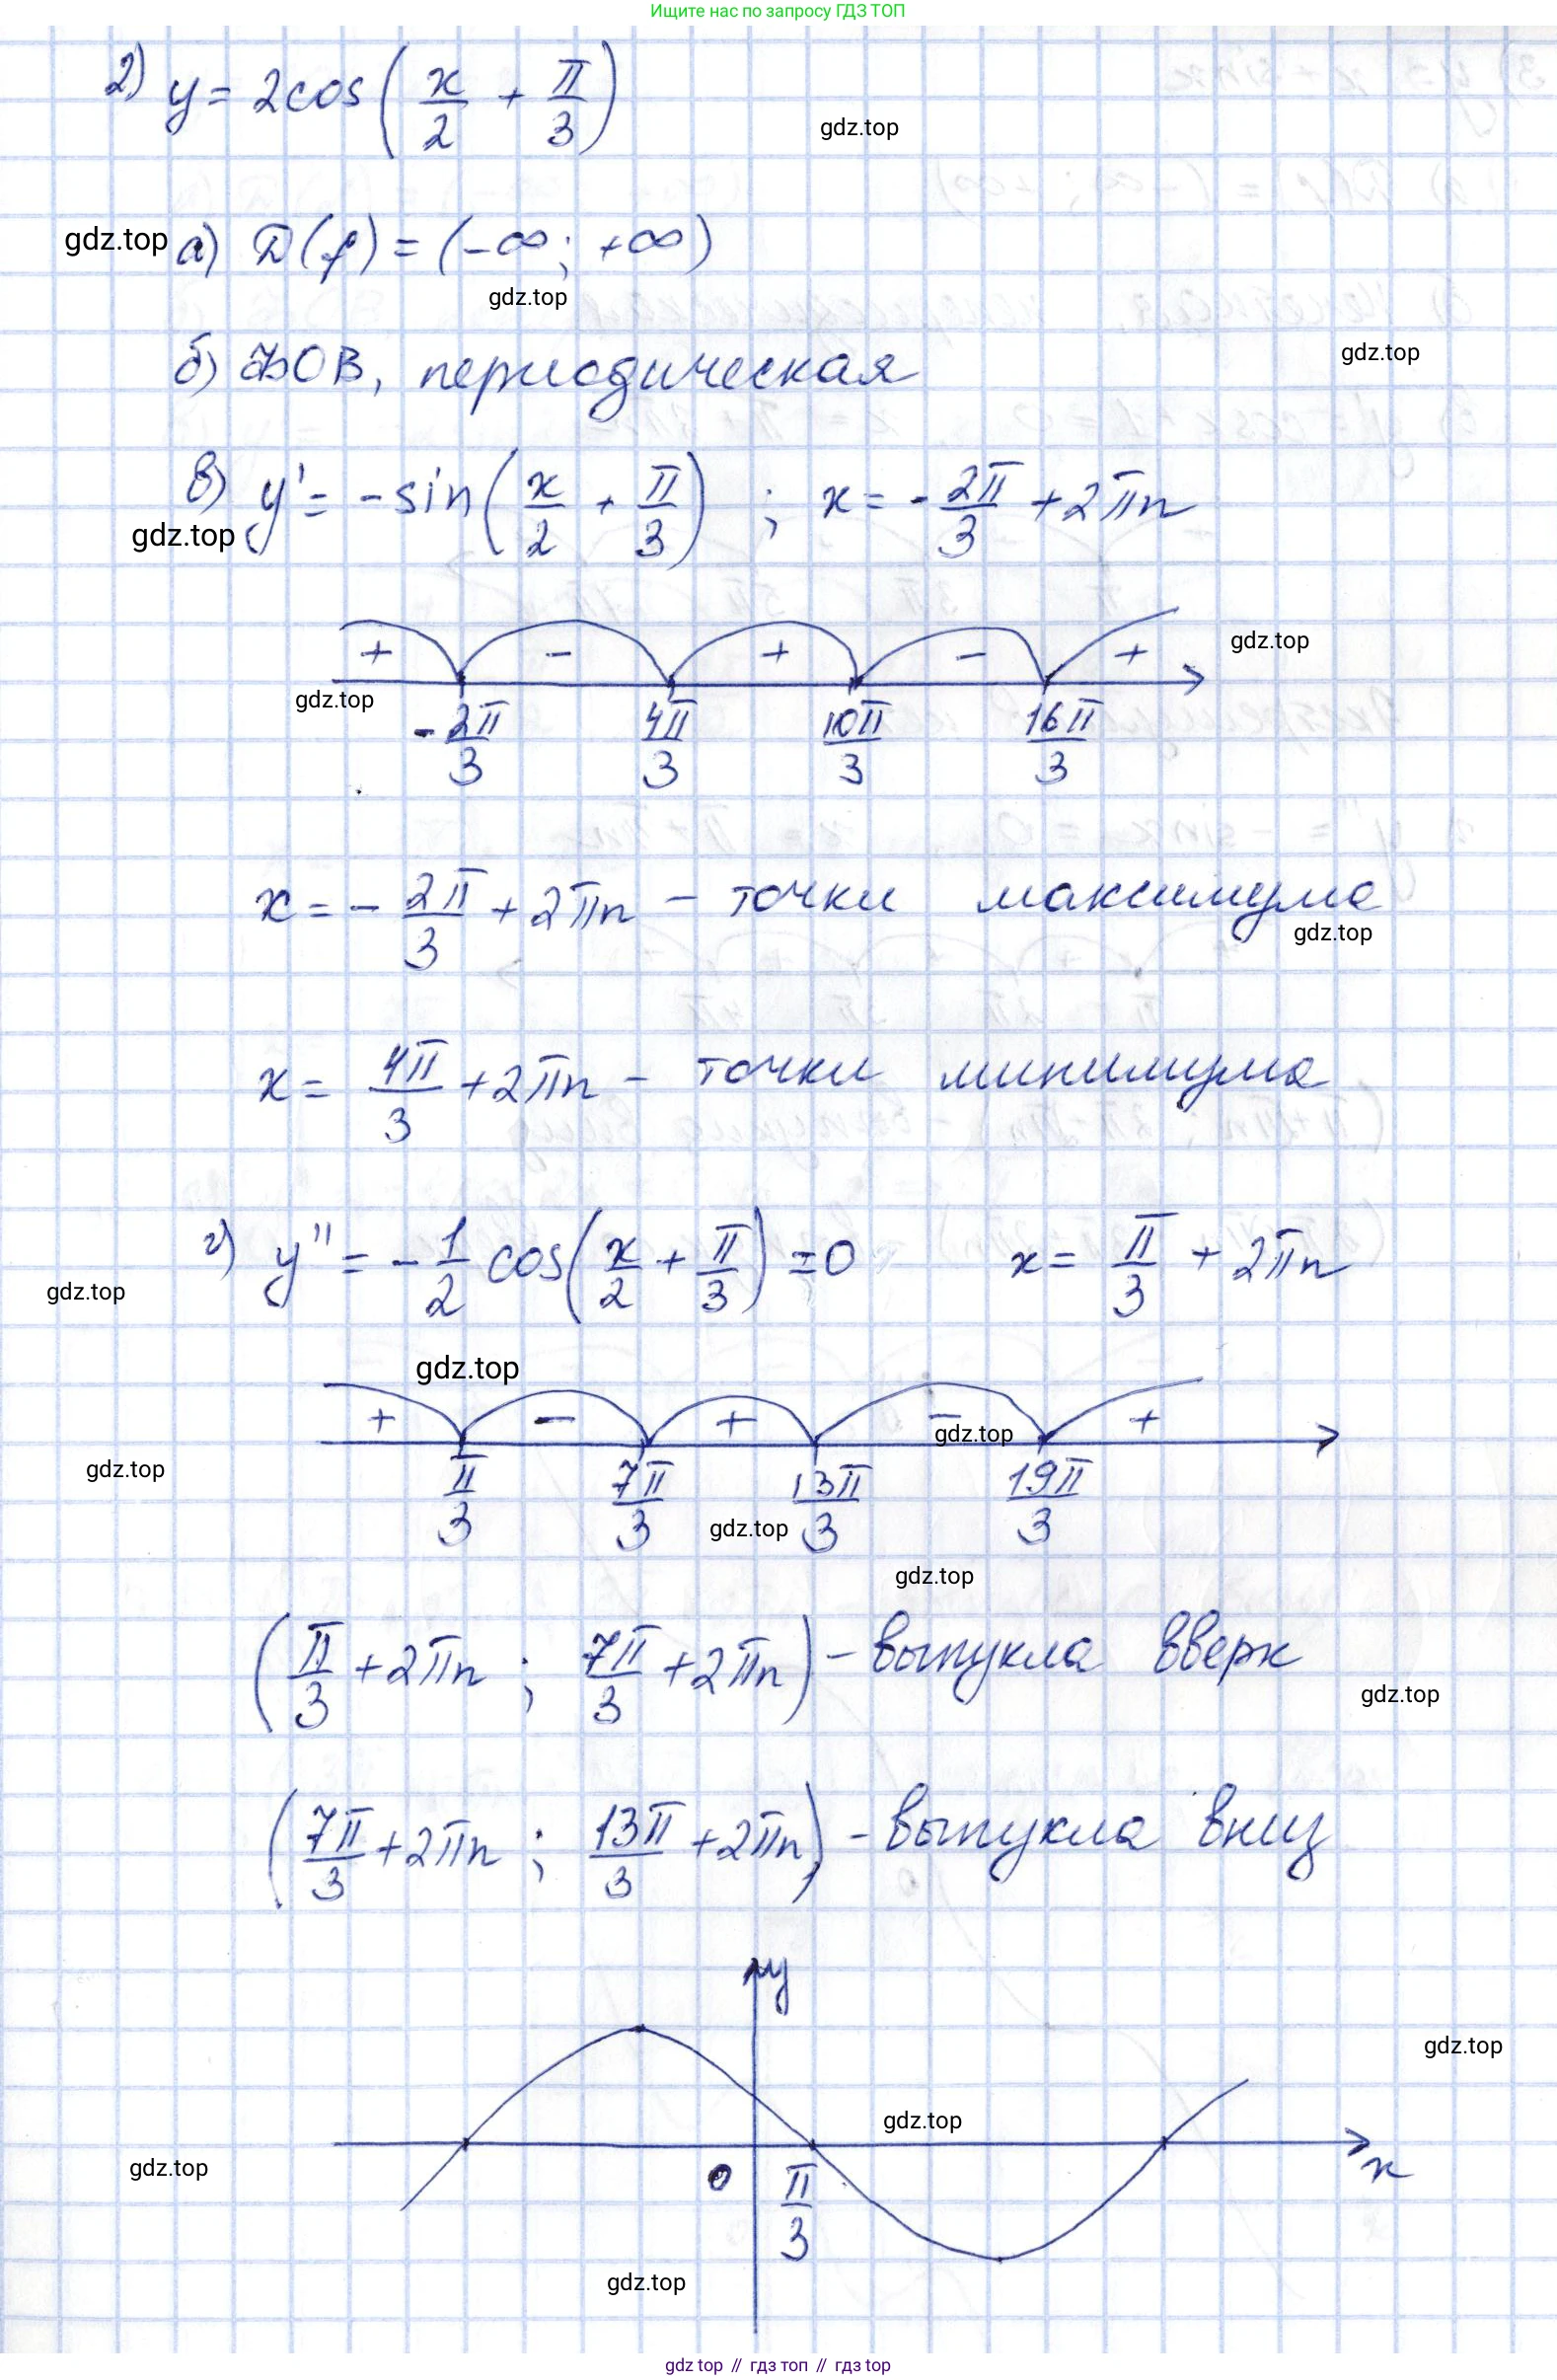 Ищите нас по запросу ГДЗ ТОП
2) y = 2cos(x/2 + π/3)
gdz.top
gdz.top
а) D(f) = (-∞; +∞)
gdz.top
б) ФОВ, периодическая
gdz.top
в) y' = -sin(x/2 + π/3) ; x = -2π/3 + 2πn
gdz.top
+ - + - +
gdz.top
gdz.top
-2π/3 4π/3 10π/3 16π/3
x = -2π/3 + 2πn - точки максимума
gdz.top
x = 4π/3 + 2πn - точки минимума
г) y'' = -1/2 cos(x/2 + π/3) = 0 x = π/3 + 2πn
gdz.top
gdz.top
+ - + - +
gdz.top
gdz.top
π/3 7π/3 13π/3 19π/3
gdz.top
gdz.top
(π/3 + 2πn ; 7π/3 + 2πn) - выпукла вверх
gdz.top
(7π/3 + 2πn ; 13π/3 + 2πn) - выпукла вниз
y
gdz.top
gdz.top
gdz.top
0 π/3 x
gdz.top
gdz top // гдз топ // гдз top